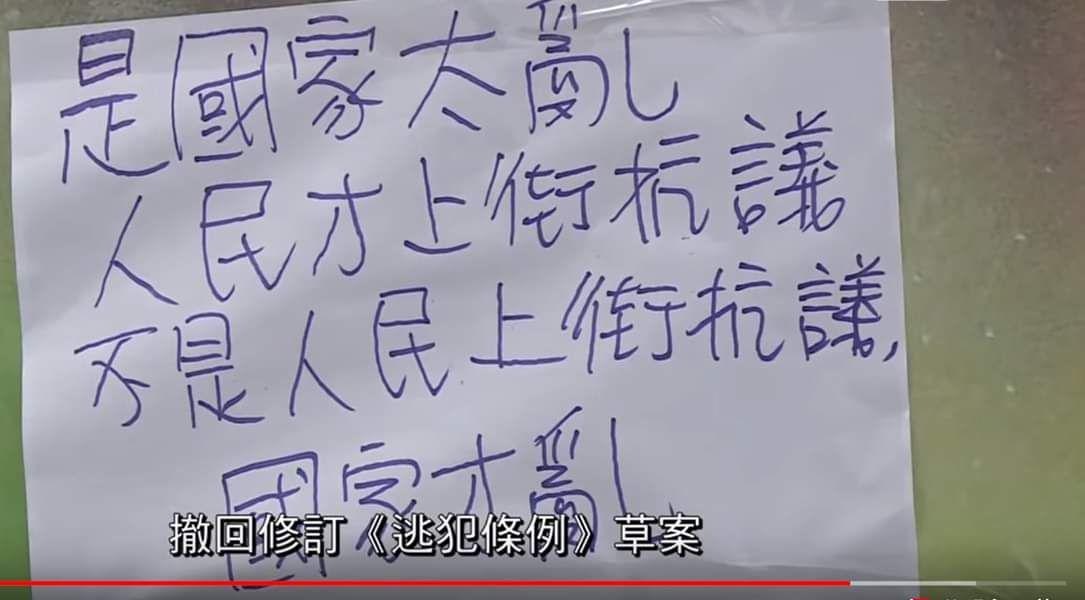 是國家大亂
人民才上街抗議
不是人民上街抗議,
國家才亂
撤回修訂《逃犯條例》草案